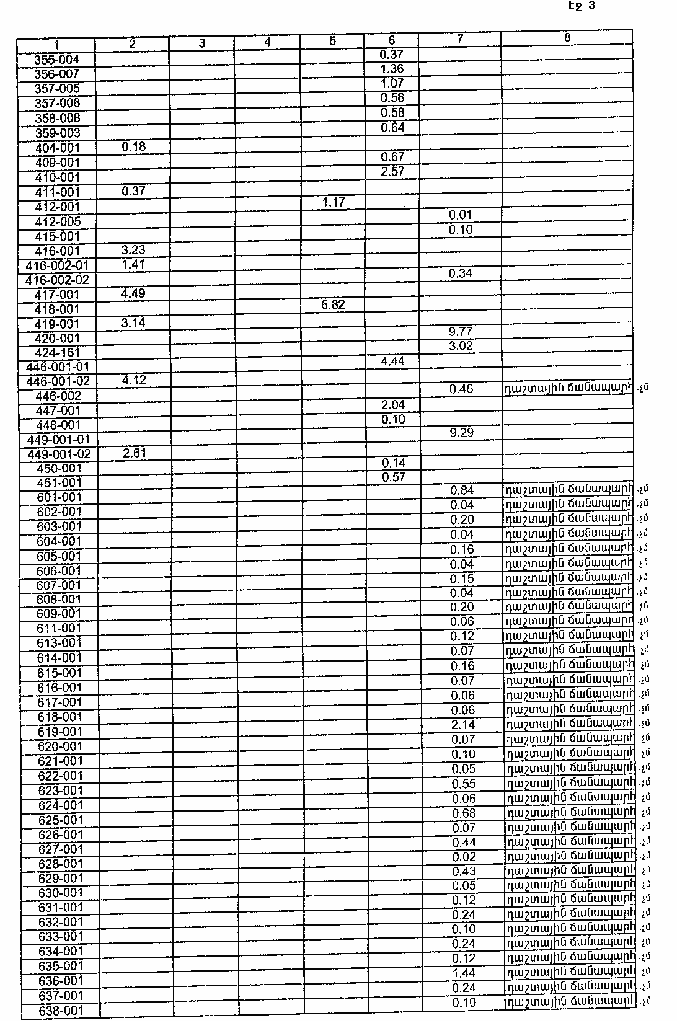 Էջ 3
1 2 3 4 5 6 7 8
355-004 0.37
356-007 1.36
357-005 1.07
357-008 0.56
358-008 0.58
359-003 0.64
404-001 0.18
409-001 0.67
410-001 2.57
411-001 0.37
412-001 1.17
412-005 0.01
415-001 0.10
416-001 3.23
416-002-01 1.41
416-002-02 0.34
417-001 4.49
418-001 6.82
419-001 3.14
420-001 9.77
424-161 3.02
446-001-01 4.44
446-001-02 4.12
446-002 0.46 դաշտային ճանապարհ
447-001 2.04
448-001 0.10
449-001-01 9.29
449-001-02 2.61
450-001 0.14
451-001 0.57
601-001 0.84 դաշտային ճանապարհ
602-001 0.04 դաշտային ճանապարհ
603-001 0.20 դաշտային ճանապարհ
604-001 0.04 դաշտային ճանապարհ
605-001 0.16 դաշտային ճանապարհ
606-001 0.04 դաշտային ճանապարհ
607-001 0.15 դաշտային ճանապարհ
608-001 0.04 դաշտային ճանապարհ
609-001 0.20 դաշտային ճանապարհ
611-001 0.06 դաշտային ճանապարհ
613-001 0.12 դաշտային ճանապարհ
614-001 0.07 դաշտային ճանապարհ
615-001 0.16 դաշտային ճանապարհ
616-001 0.07 դաշտային ճանապարհ
617-001 0.06 դաշտային ճանապարհ
618-001 0.06 դաշտային ճանապարհ
619-001 2.14 դաշտային ճանապարհ
620-001 0.07 դաշտային ճանապարհ
621-001 0.10 դաշտային ճանապարհ
622-001 0.05 դաշտային ճանապարհ
623-001 0.55 դաշտային ճանապարհ
624-001 0.06 դաշտային ճանապարհ
625-001 0.68 դաշտային ճանապարհ
626-001 0.07 դաշտային ճանապարհ
627-001 0.44 դաշտային ճանապարհ
628-001 0.02 դաշտային ճանապարհ
629-001 0.43 դաշտային ճանապարհ
630-001 0.05 դաշտային ճանապարհ
631-001 0.12 դաշտային ճանապարհ
632-001 0.24 դաշտային ճանապարհ
633-001 0.10 դաշտային ճանապարհ
634-001 0.24 դաշտային ճանապարհ
635-001 0.12 դաշտային ճանապարհ
636-001 1.44 դաշտային ճանապարհ
637-001 0.24 դաշտային ճանապարհ
638-001 0.10 դաշտային ճանապարհ